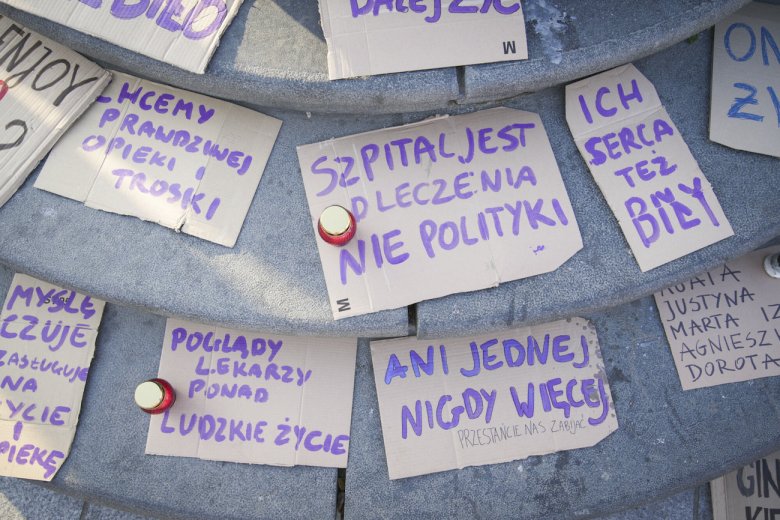 DALEJ ŻYĆ
ENJOY
?
CHCEMY
PRAWDZIWEJ
OPIEKI I
TROSKI
SZPITAL JEST
OD LECZENIA
NIE POLITYKI
ICH
SERCA
TEŻ
BIŁY
MYŚLĘ
CZUJE
ZASŁUGUJE
NA
ŻYCIE
I
OPIEKĘ
POGLĄDY
LEKARZY
PONAD
LUDZKIE ŻYCIE
ANI JEDNEJ
NIGDY WIĘCEJ
PRZESTAŃCIE NAS ZABIJAĆ
JUSTYNA
MARTA IZ
AGNIESZ
DOROTA
GIN